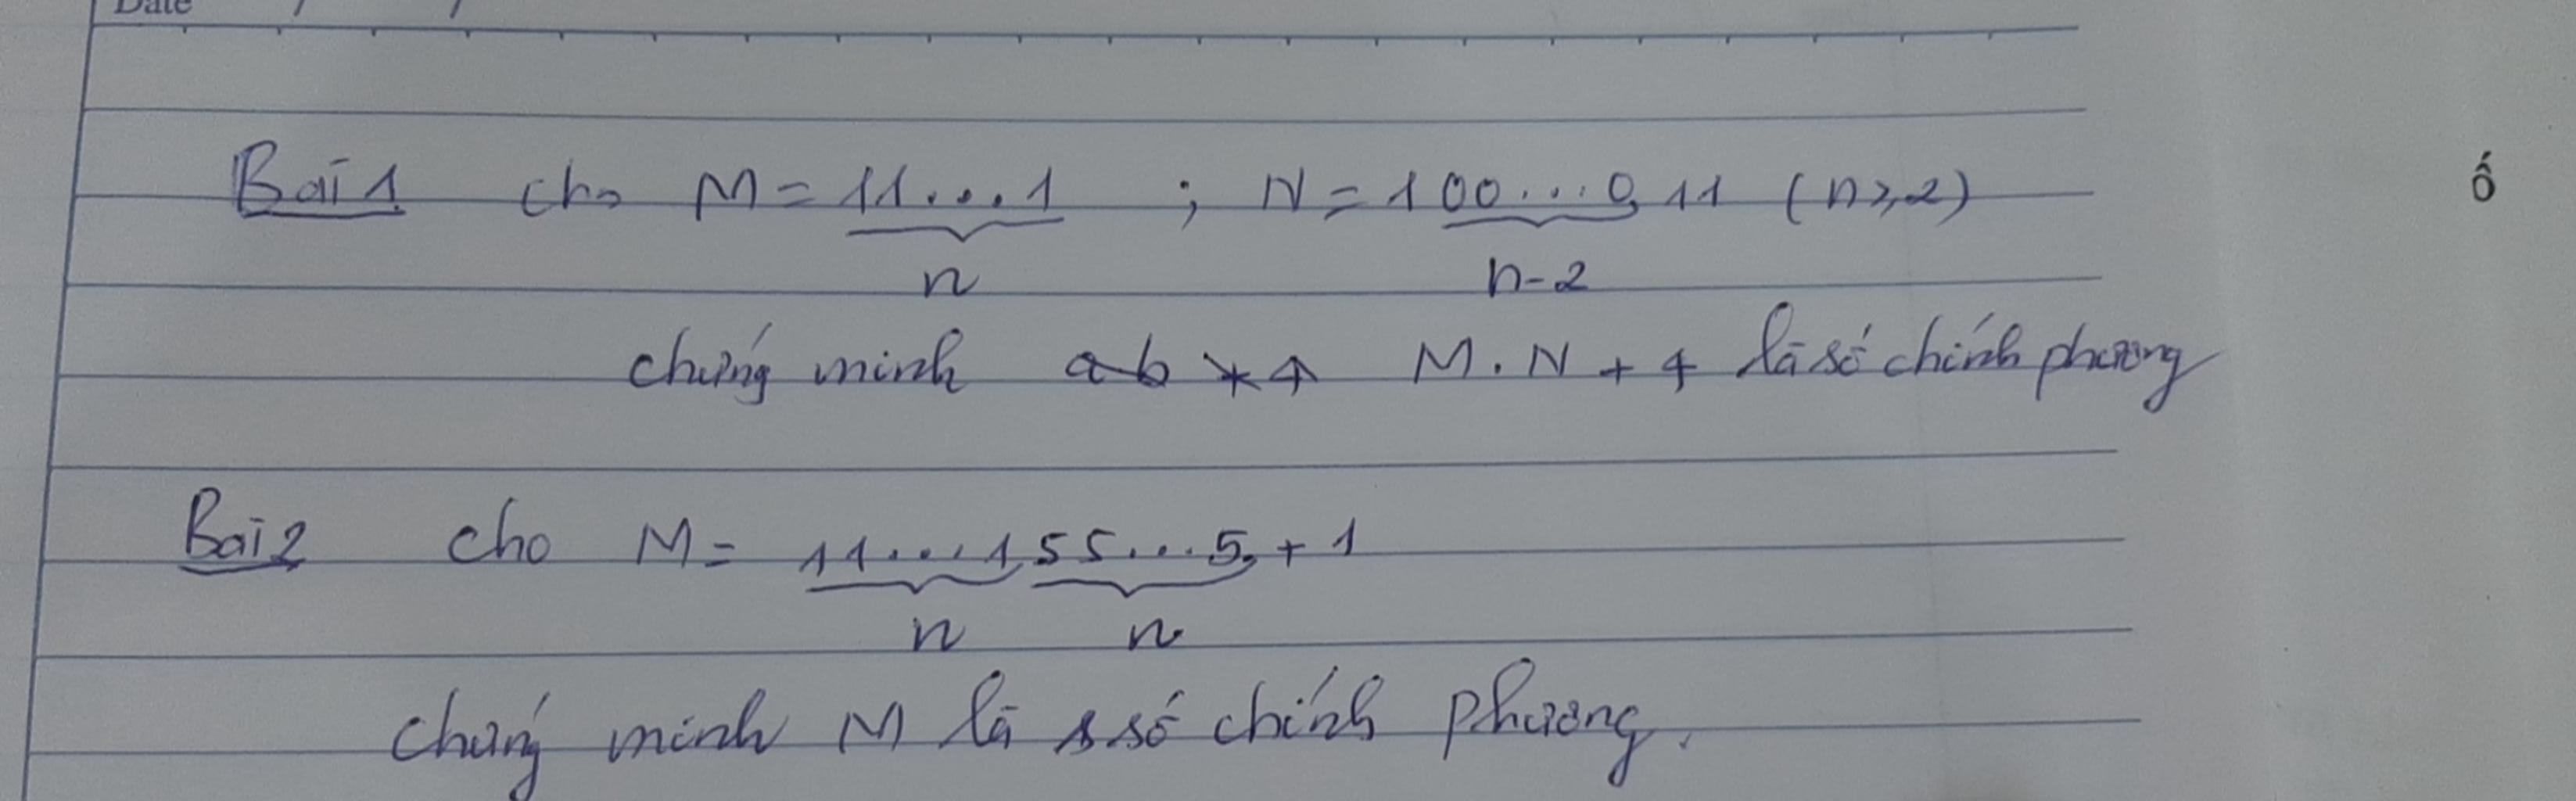 Date / /
Bài 1 cho M = 11...1 ; N = 1 00...0 11 (n ≥ 2)
n n-2
ố
chứng minh M . N + 4 là số chính phương
Bài 2 cho M = 11...1 55...5 + 1
n n
chứng minh M là số chính phương.